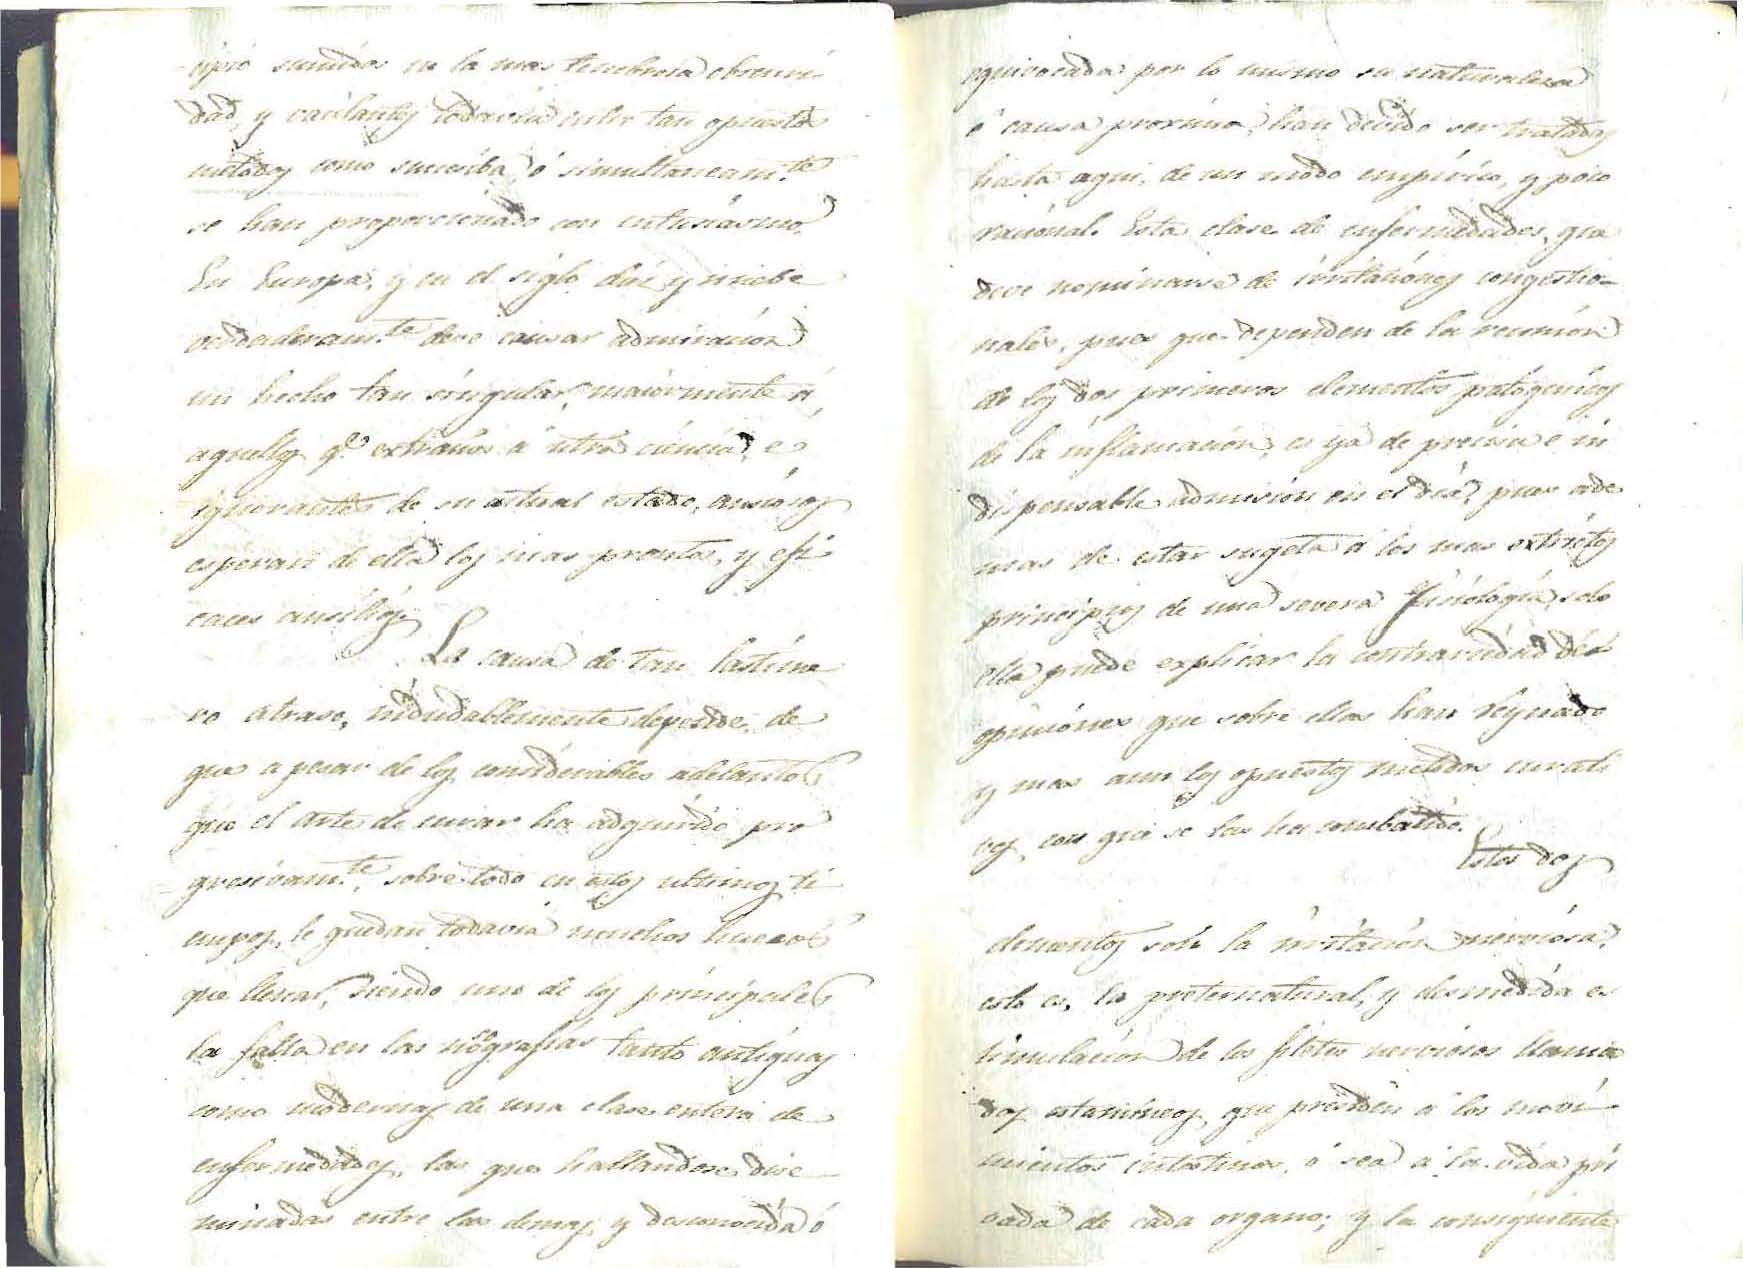 cipio sumidos en la mas tenebrosa obscuri-
dad, y vacilantes todavia entre tan opuestos
metodos como sucesiba ó simultaneam.te
se han proporcionado con entusiasmo.
En Europa, y en el siglo diez y niebe
verdaderam.te deve causar admiración
un hecho tan singular, maiormente á
aquellos q.e extraños á ntra ciencia, e
ignorantes de su actual estado, ansiosos
esperan de ella los mas prontos, y efi
caces ausilios.
La causa de tan lastimo
so atraso, indudablemente depende, de
que a pesar de los considerables adelantos
que el arte de curar ha adquirido pro
gresivam.te, sobre todo en estos ultimos ti
empos, le quedan todavia muchos huecos
que llenar, siendo uno de los principales
la falta en las nosografias tanto antiguas
como modernas de una clase entera de
enfermedades, las que hallandose dise
minadas entre las demas, y desconocida ó
equivocada por lo mismo su naturaleza
ó causa proxima, han devido ser tratadas
hasta aqui, de un modo empirico, y poco
racional. Esta clase de enfermedades, que
deve nominarse de irritaciones congestio-
nales, pues que dependen de la reunión
de los dos primeros elementos patogenicos
de la inflamacion, es ya de precisa e in
dispensable admision en el dia, pues ade
mas de estar sugeta á los mas extrictos
principios de una severa Fisiologia, solo
ella puede explicar la contrariedad de
opiniones que sobre ellas han reynado
y mas aun los opuestos metodos curati
vos, con que se las ha combatido.
Estos dos
elementos son la irritación nerviosa,
esto es, la preternatural, y desmedida es
timulacion de los filetes nerviosos llama
dos estamineos, que presiden á los movi-
mientos intestinos, ó sea á la vida pri
vada de cada organo; y la consiguiente